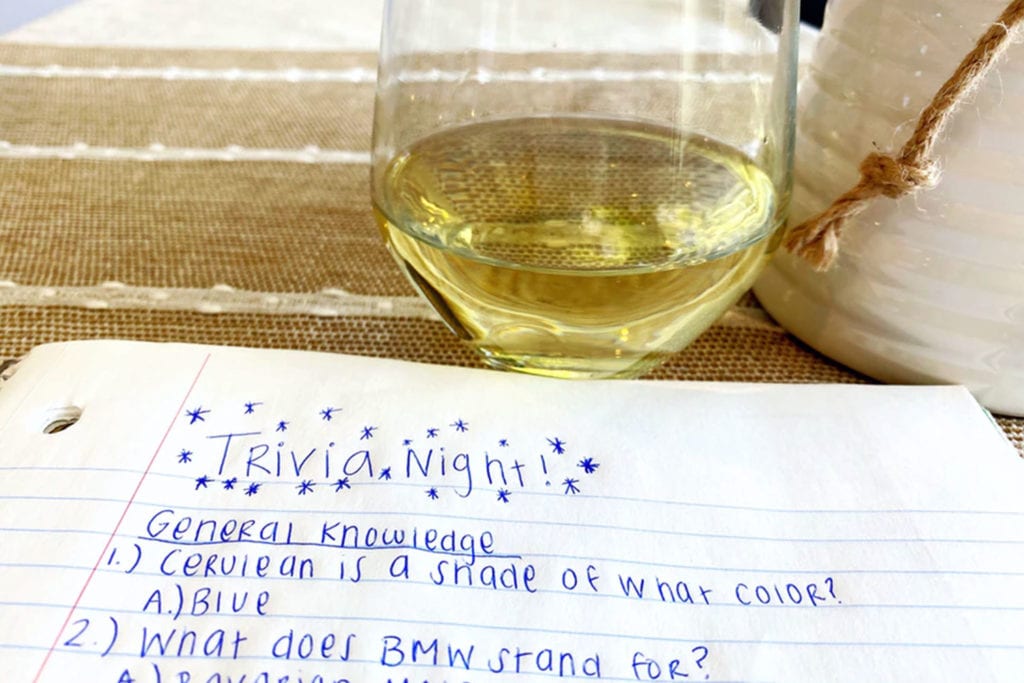 Trivia Night!
General Knowledge
1.) Cerulean is a shade of what color?
A.) Blue
2.) What does BMW stand for?
A.) Bavarian